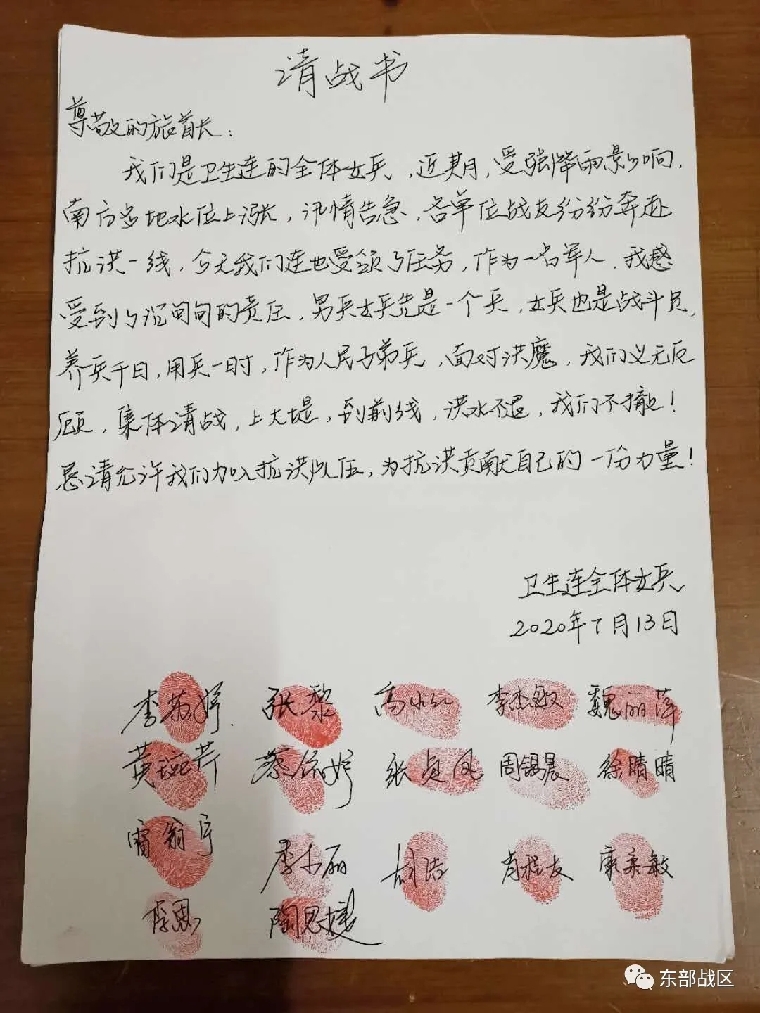 请战书
尊敬的旅首长：
我们是卫生连的全体女兵，近期，受强降雨影响，
南方多地水位上涨，汛情告急，各单位战友纷纷奔赴
抗洪一线，今天我们连也受领了任务，作为一名军人，我感
受到了沉甸甸的责任，男兵女兵先是一个兵，女兵也是战斗员，
养兵千日，用兵一时，作为人民子弟兵，面对洪魔，我们义无反
顾，集体请战，上大堤，到前线，洪水不退，我们不撤！
恳请允许我们加入抗洪队伍，为抗洪贡献自己的一份力量！
卫生连全体女兵
2020年7月13日
张黎 李杰敏 魏丽萍
张贞凤 周锡晨 徐晴晴
胡洁 康柔敏
陶思媛
东部战区